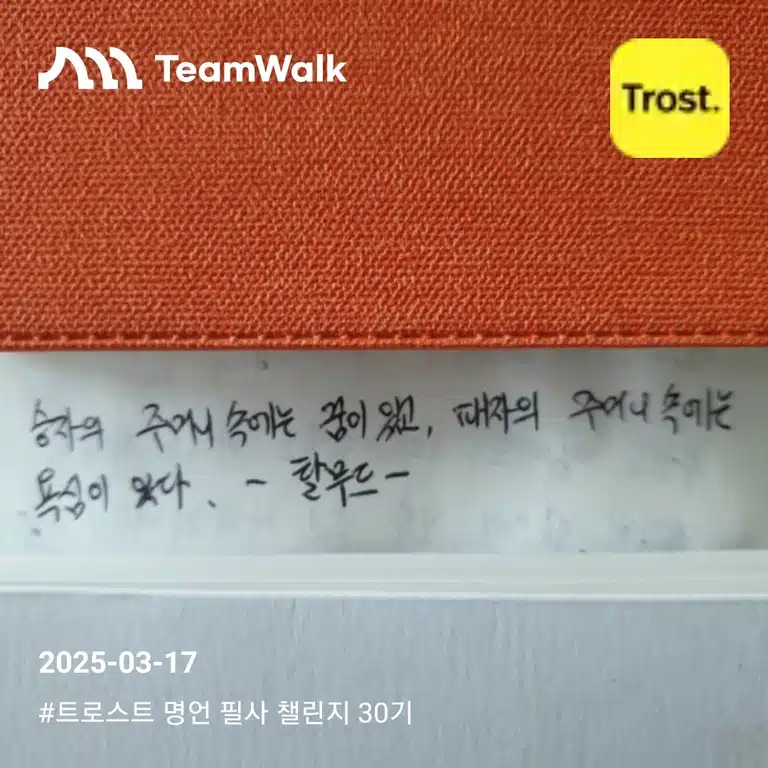 TeamWalk
Trost.
승자의 주머니 속에는 꿈이 있고, 패자의 주머니 속에는
욕심이 있다. - 탈무드 -
2025-03-17
#트로스트 명언 필사 챌린지 30기